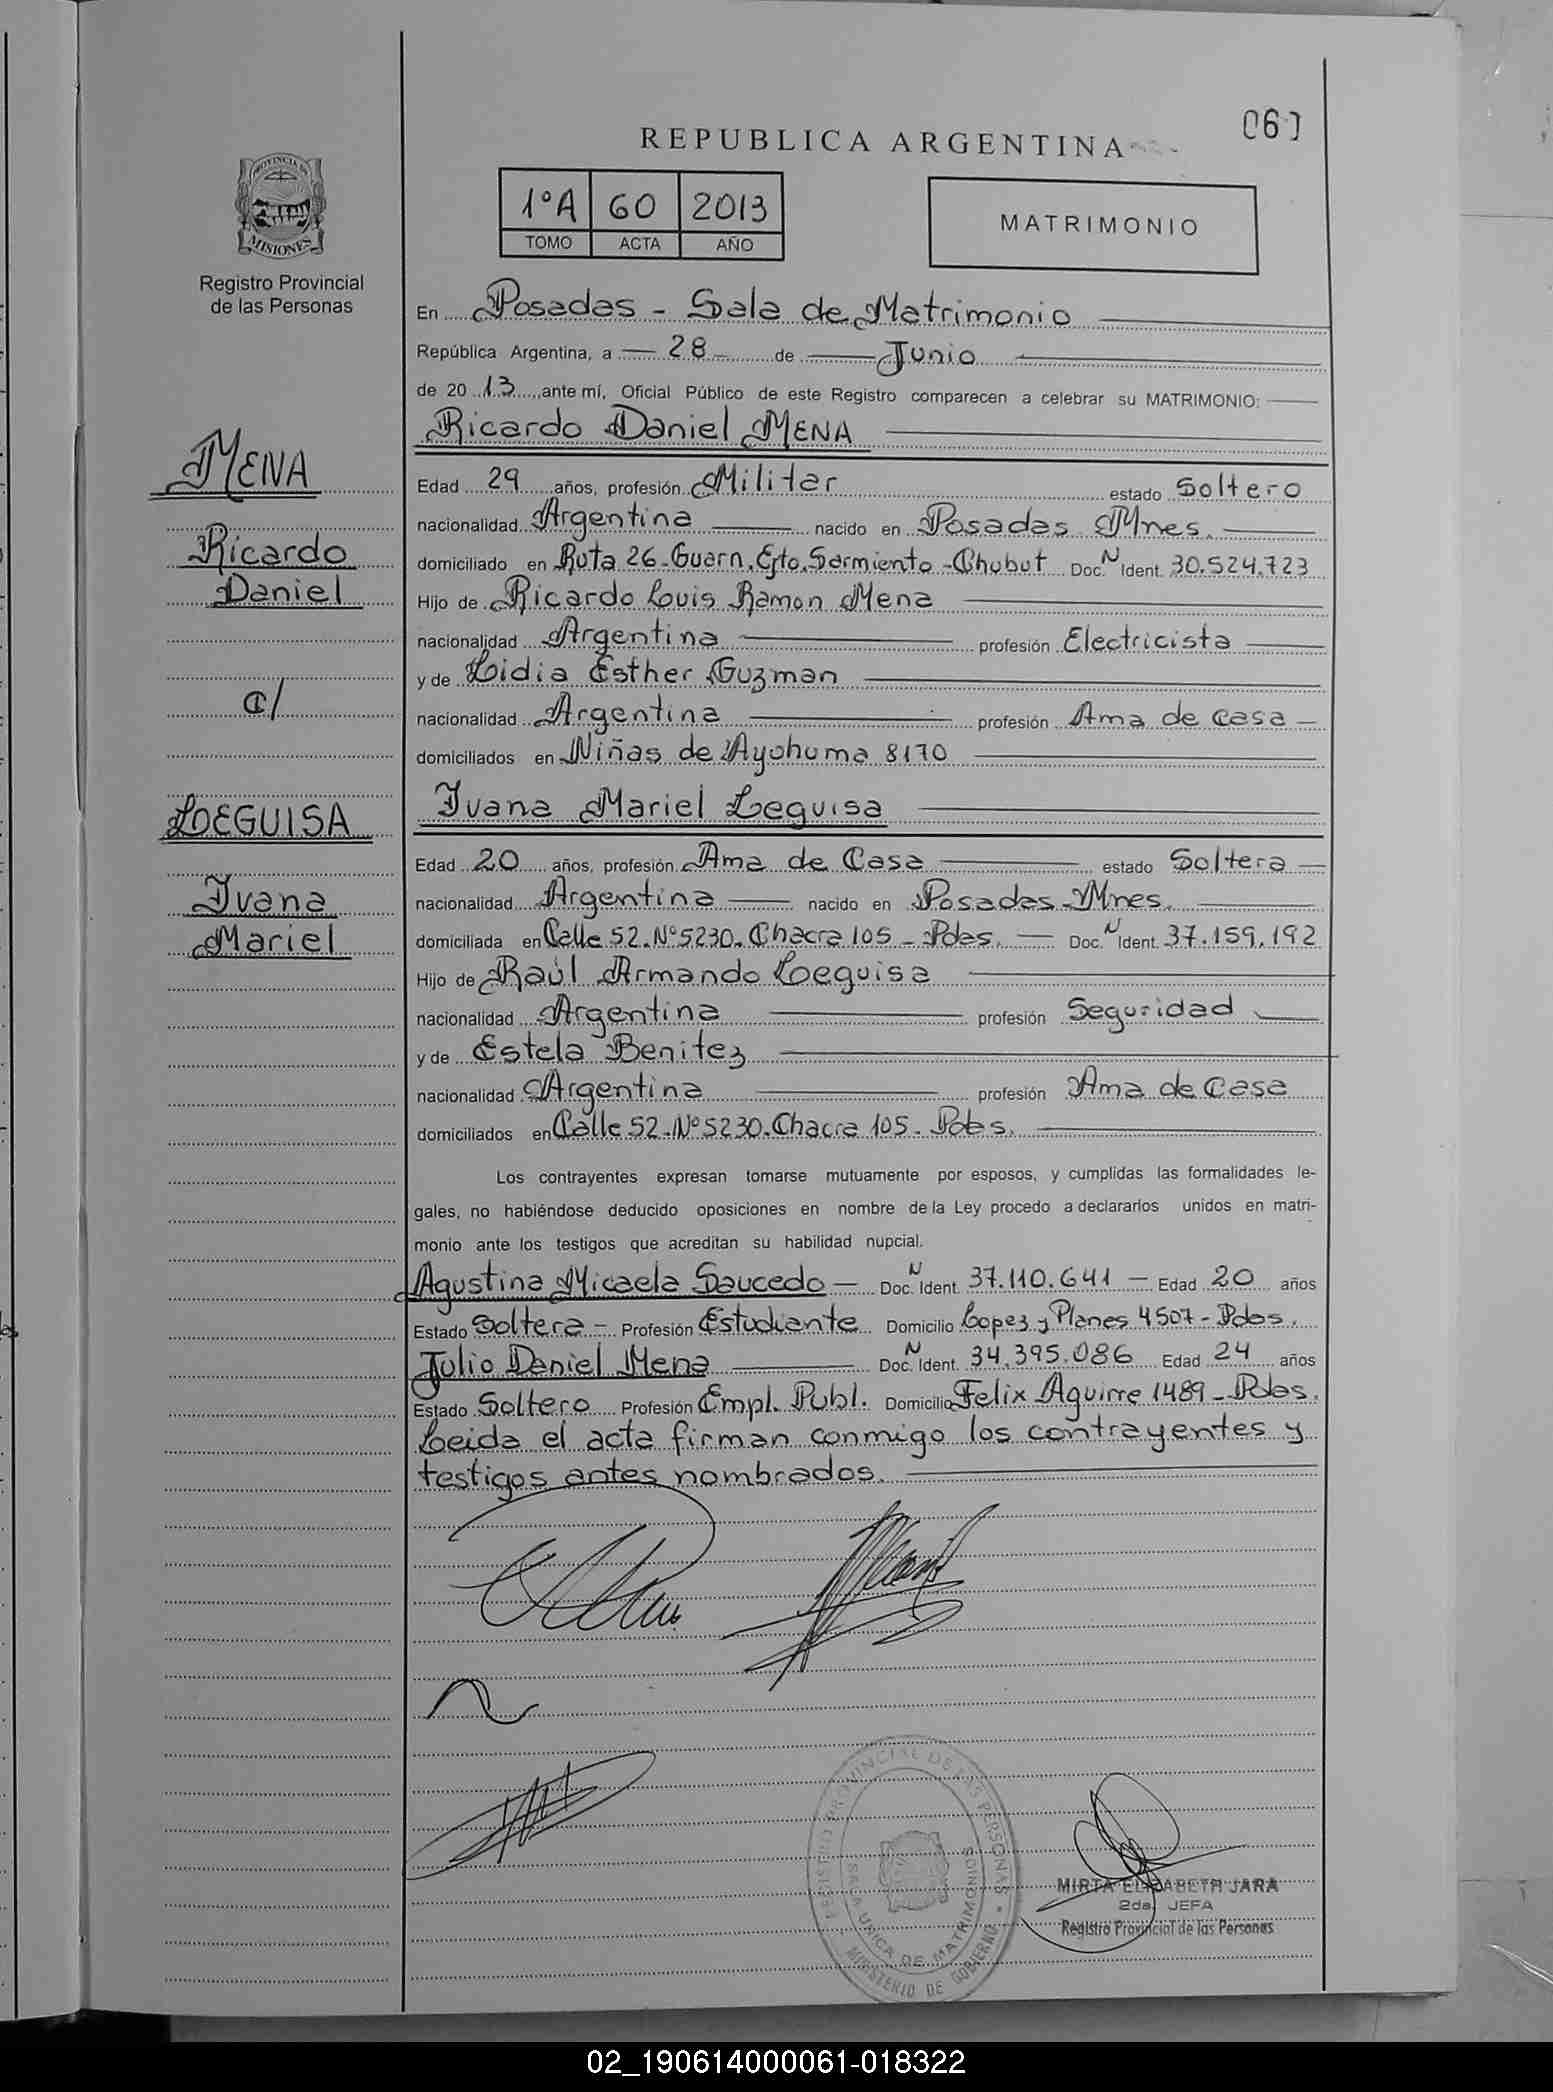 REPUBLICA ARGENTINA
PROVINCIA DE
MISIONES
Registro Provincial
de las Personas
1°A 60 2013
TOMO ACTA AÑO
MATRIMONIO
En Posadas - Sala de Matrimonio
República Argentina, a 28 de Junio
de 20 13 ante mí, Oficial Público de este Registro comparecen a celebrar su MATRIMONIO:
Ricardo Daniel MENA
MENA
Ricardo
Daniel
c/
LEGUISA
Ivana
Mariel
Edad 29 años, profesión Militar estado Soltero
nacionalidad Argentina nacido en Posadas Mnes.
domiciliado en Ruta 26-Guarn. Ejto. Sarmiento - Chubut Doc. N Ident. 30.524.723
Hijo de Ricardo Luis Ramon Mena
nacionalidad Argentina profesión Electricista
y de Lidia Esther Guzman
nacionalidad Argentina profesión Ama de casa
domiciliados en Niñas de Ayohuma 8170
Ivana Mariel Leguisa
Edad 20 años, profesión Ama de Casa estado Soltera
nacionalidad Argentina nacido en Posadas-Mnes.
domiciliada en Calle 52-N°5230-Chacra 105-Pdas. Doc. N Ident. 37.159.192
Hijo de Raúl Armando Leguisa
nacionalidad Argentina profesión Seguridad
y de Estela Benitez
nacionalidad Argentina profesión Ama de Casa
domiciliados en Calle 52-N°5230-Chacra 105-Pdas.
Los contrayentes expresan tomarse mutuamente por esposos, y cumplidas las formalidades le-
gales, no habiéndose deducido oposiciones en nombre de la Ley procedo a declararlos unidos en matri-
monio ante los testigos que acreditan su habilidad nupcial.
Agustina Micaela Saucedo - Doc. N Ident. 37.110.641 - Edad 20 años
Estado Soltera - Profesión Estudiante Domicilio Lopez y Planes 4507-Pdas.
Julio Daniel Mena Doc. N Ident. 34.395.086 Edad 24 años
Estado Soltero Profesión Empl. Publ. Domicilio Felix Aguirre 1489-Pdas.
Leida el acta firman conmigo los contrayentes y
testigos antes nombrados.
REGISTRO PROVINCIAL DE LAS PERSONAS
SALA UNICA DE MATRIMONIOS
MINISTERIO DE GOBIERNO
MIRTA ELIZABETH JARA
2da. JEFA
Registro Provincial de las Personas
02_190614000061-018322